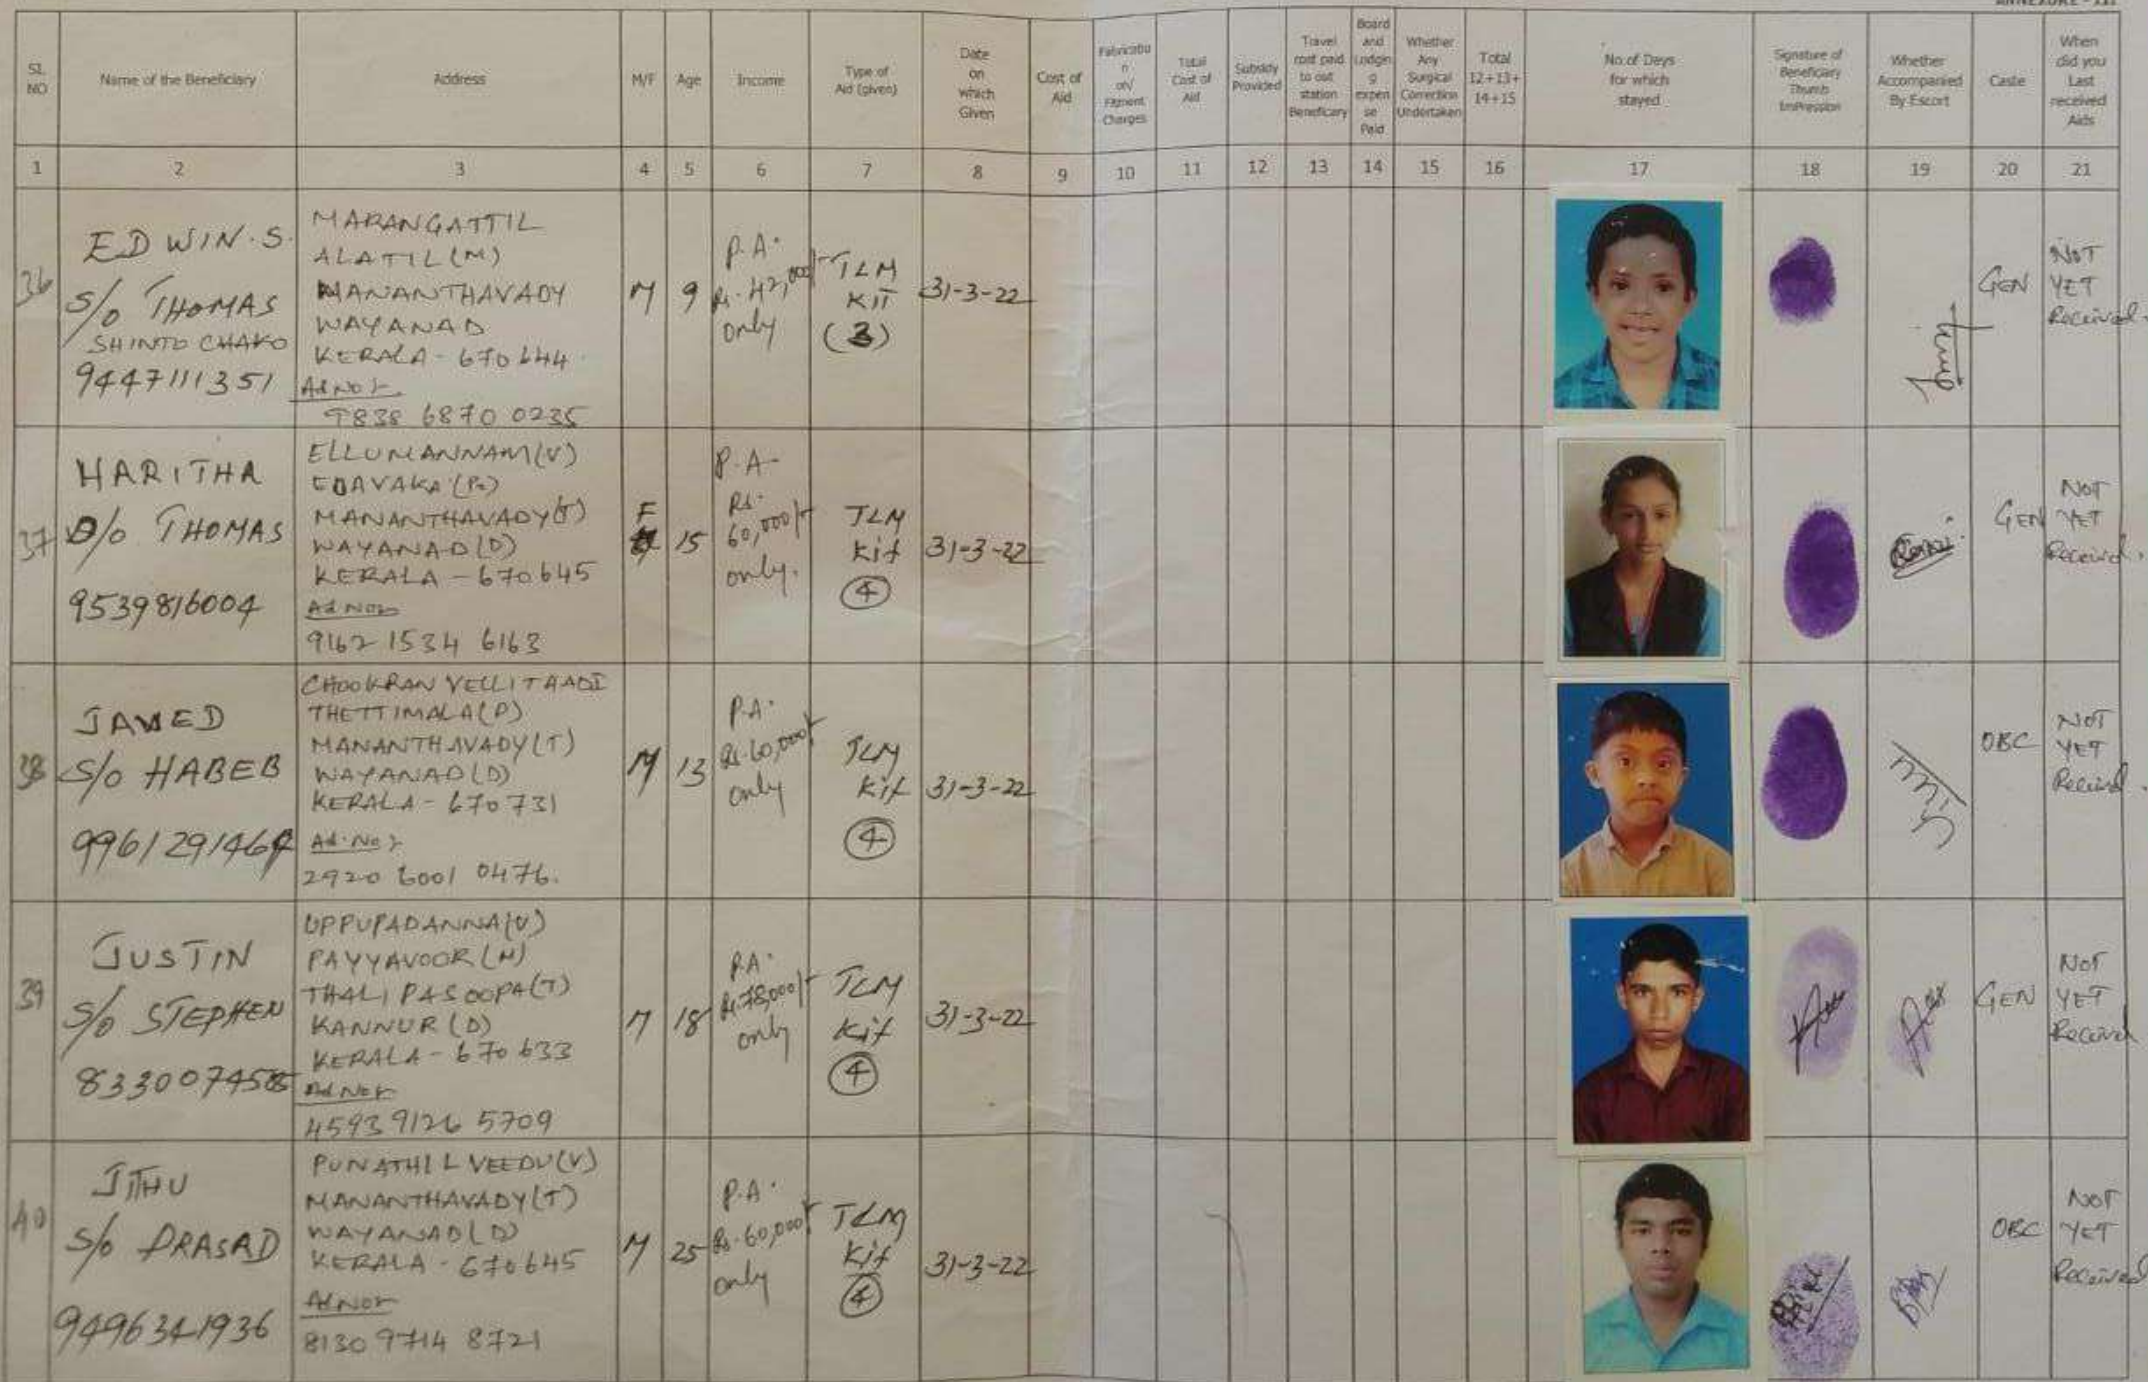 ANNEXURE - III
SL NO
Name of the Beneficiary
Address
M/F
Age
Income
Type of Aid (given)
Date on which Given
Cost of Aid
Fabrication/ Fitment Charges
Total Cost of Aid
Subsidy Provided
Travel cost paid to out station Beneficiary
Board and Lodging expense Paid
Whether Any Surgical Correction Undertaken
Total 12+13+14+15
No.of Days for which stayed
Signature of Beneficiary Thumb ImPression
Whether Accompanied By Escort
Caste
When did you Last received Aids
1 2 3 4 5 6 7 8 9 10 11 12 13 14 15 16 17 18 19 20 21
36
EDWIN.S.
S/o THOMAS
SHINTO CHAKO
9447111351
MARANGATTIL
ALATIL(M)
MANANTHAVADY
WAYANAD
KERALA - 670644
Ad No:-
9838 6870 0235
M
9
P.A.
Rs. 42,000/-
only
TLM
KIT
(3)
31-3-22
GEN
NOT
YET
Received.
37
HARITHA
D/o THOMAS
9539816004
ELLUMANNAM(V)
EDAVAKA(Po)
MANANTHAVADY(T)
WAYANAD(D)
KERALA - 670645
Ad No:-
9162 1534 6163
F
15
P.A-
Rs.
60,000/-
only.
TLM
Kit
4
31-3-22
GEN
NOT
YET
Received.
38
S/o HABEB
THETTIMALA(P)
MANANTHAVADY(T)
WAYANAD(D)
KERALA - 670731
Ad.No:-
2920 6001 0476.
M
13
P.A.
Rs.60,000/-
only
TLM
Kit
4
31-3-22
OBC
NOT
YET
Received.
39
JUSTIN
S/o STEPHEN
UPPUPADANNA(V)
PAYYAVOOR(M)
KANNUR(D)
KERALA - 670633
Ad No:-
4593 9126 5709
M
18
P.A.
Rs.78,000/-
only
TLM
Kit
4
31-3-22
GEN
NOT
YET
Received
40
JITHU
S/o PRASAD
9496341936
PUNATHIL VEEDU(V)
MANANTHAVADY(T)
WAYANAD(D)
KERALA - 670645
Ad No:-
8130 9714 8721
M
25
P.A.
Rs.60,000/-
only
TLM
Kit
4
31-3-22
OBC
NOT
YET
Received